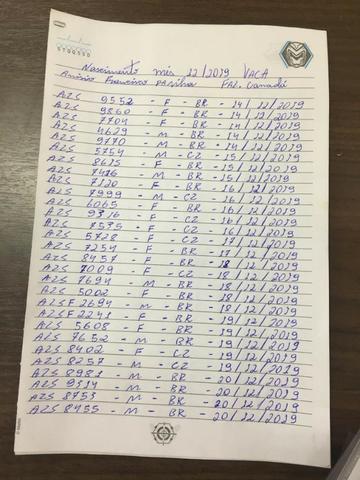 Nascimento mês 12/2019 VACA
Faz. Canadá
AZS 9552 - F - BR - 14/12/2019
AZS 9860 - F - BR - 14/12/2019
AZS 7704 - F - BR - 14/12/2019
AZS 4629 - M - BR - 14/12/2019
AZS 9770 - M - BR - 14/12/2019
AZS 5754 - M - CZ - 15/12/2019
AZS 8615 - F - BR - 15/12/2019
AZS 7476 - M - BR - 15/12/2019
AZS 7120 - F - BR - 16/12/2019
AZS 7999 - M - CZ - 16/12/2019
AZS 6065 - F - BR - 16/12/2019
AZS 9316 - F - CZ - 16/12/2019
AZS 7535 - F - CZ - 16/12/2019
AZS 5728 - F - CZ - 17/12/2019
AZS 7254 - F - BR - 17/12/2019
AZS 8457 - F - BR - 18/12/2019
AZS 7009 - F - CZ - 18/12/2019
AZS 7694 - M - BR - 18/12/2019
AZS 5002 - F - BR - 18/12/2019
AZSF 2694 - M - BR - 18/12/2019
AZSF 2241 - F - BR - 19/12/2019
AZS 5608 - F - BR - 19/12/2019
AZS 7652 - M - BR - 19/12/2019
AZS 8402 - F - CZ - 19/12/2019
AZS 8257 - M - CZ - 19/12/2019
AZS 8981 - M - BR - 20/12/2019
AZS 9314 - M - BR - 20/12/2019
AZS 8753 - M - BR - 20/12/2019
AZS 8455 - M - BR - 20/12/2019